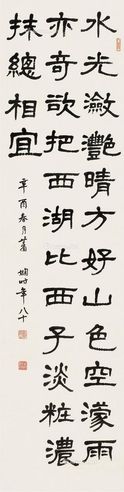 水光瀲灩晴方好山色空濛雨
亦奇欲把西湖比西子淡粧濃
抹總相宜
辛酉春月蕭
嫻时年八十